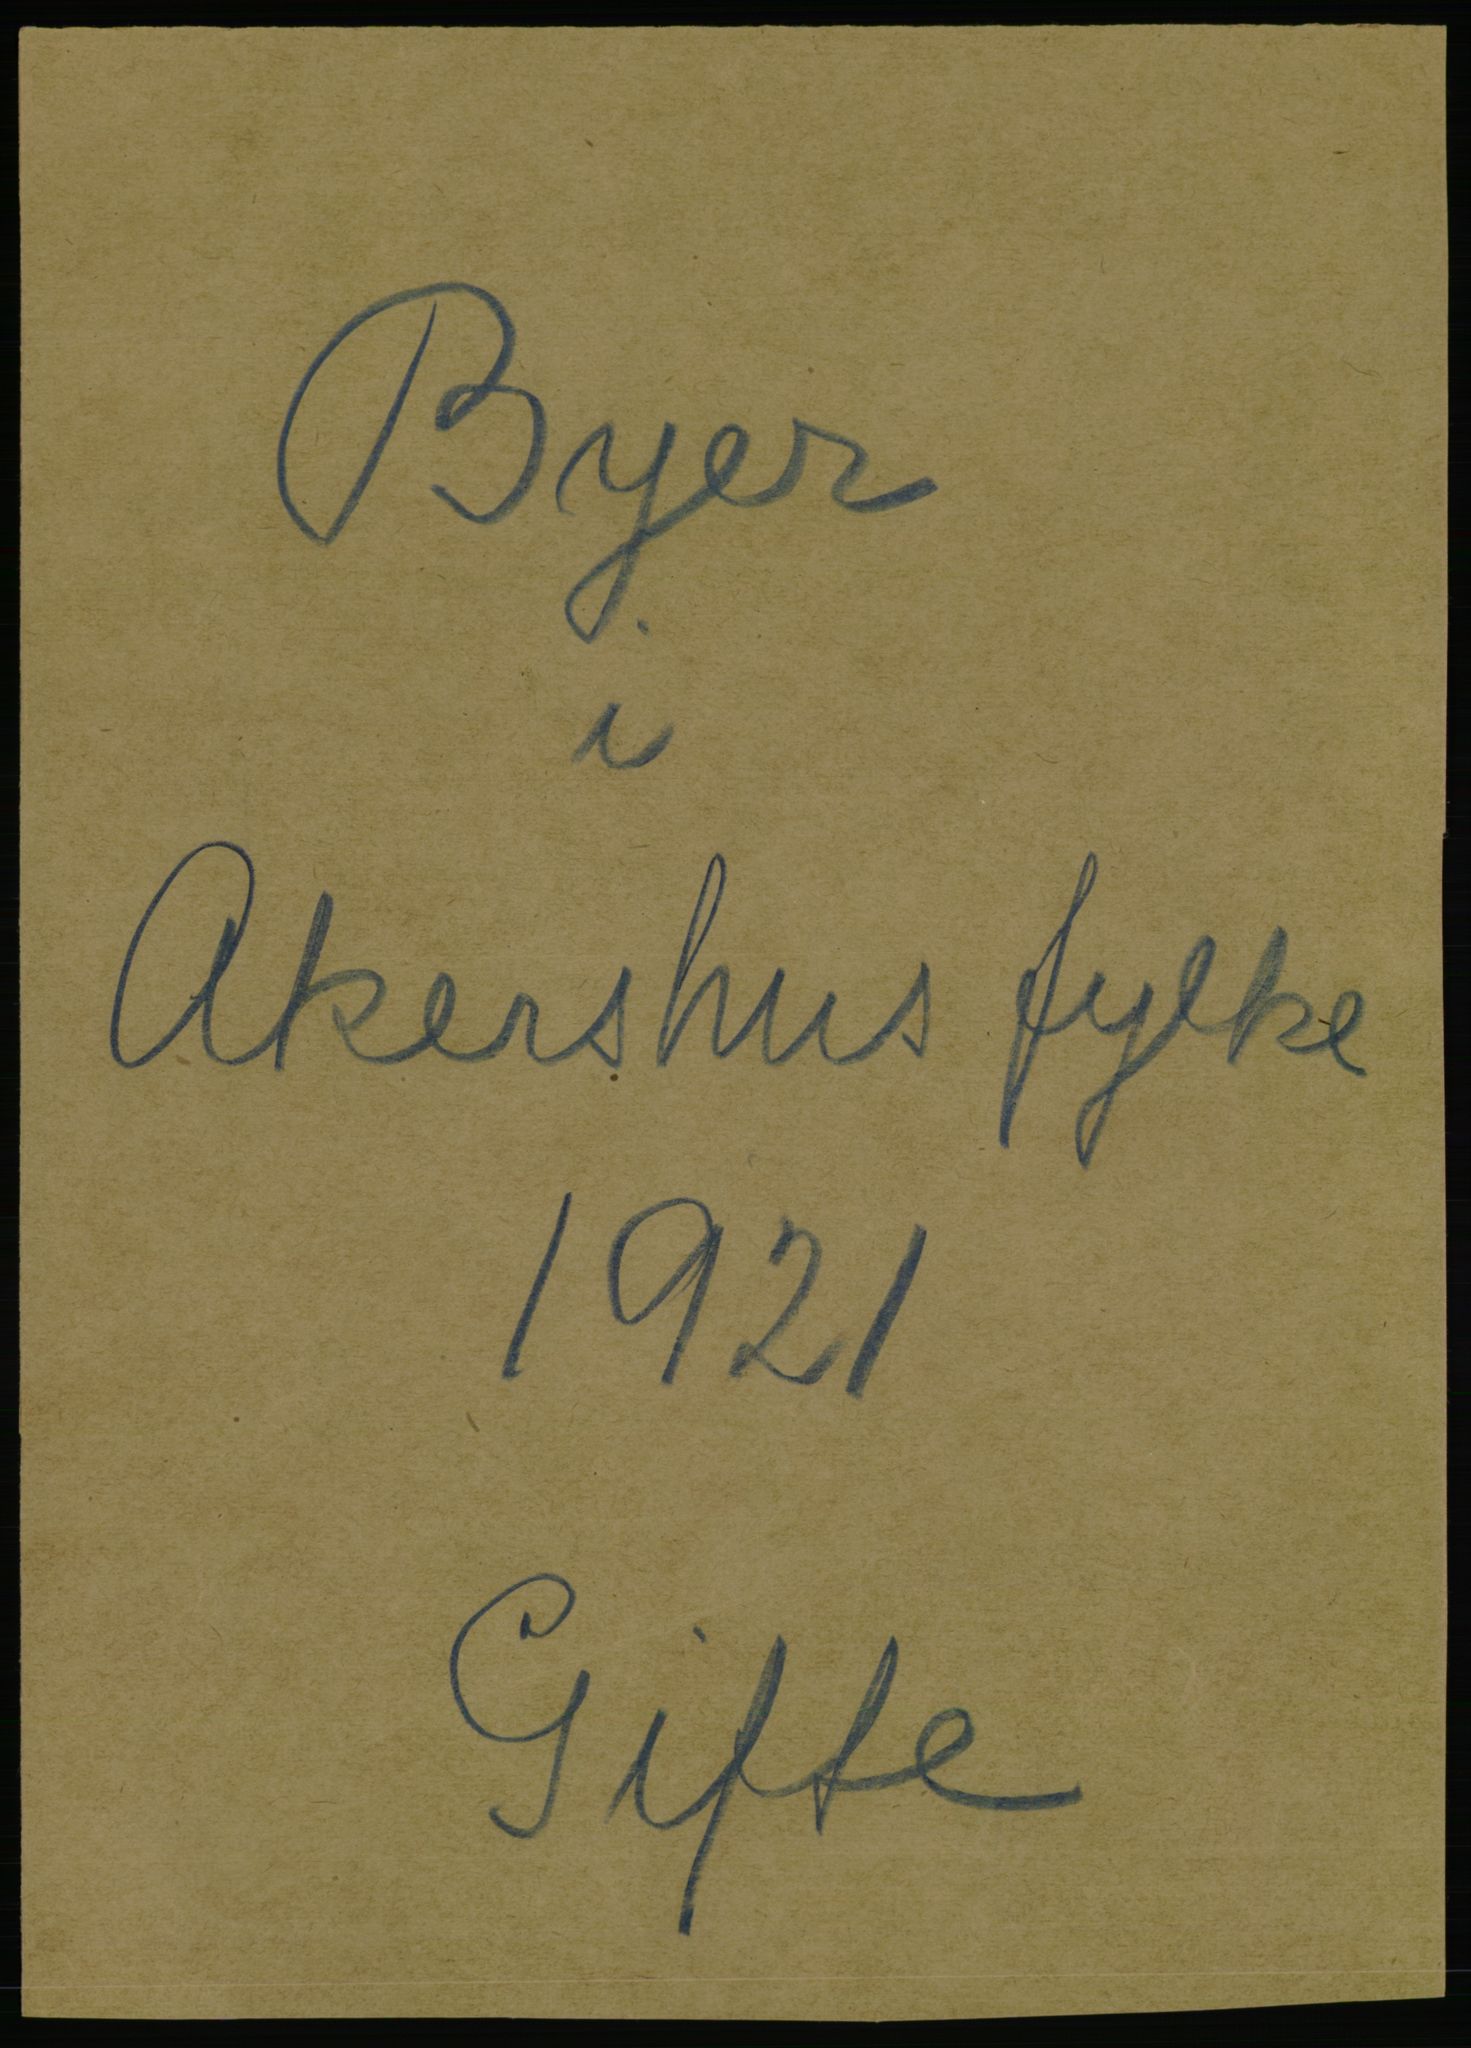 Byer
i
Akershus fylke
1921
Gifte